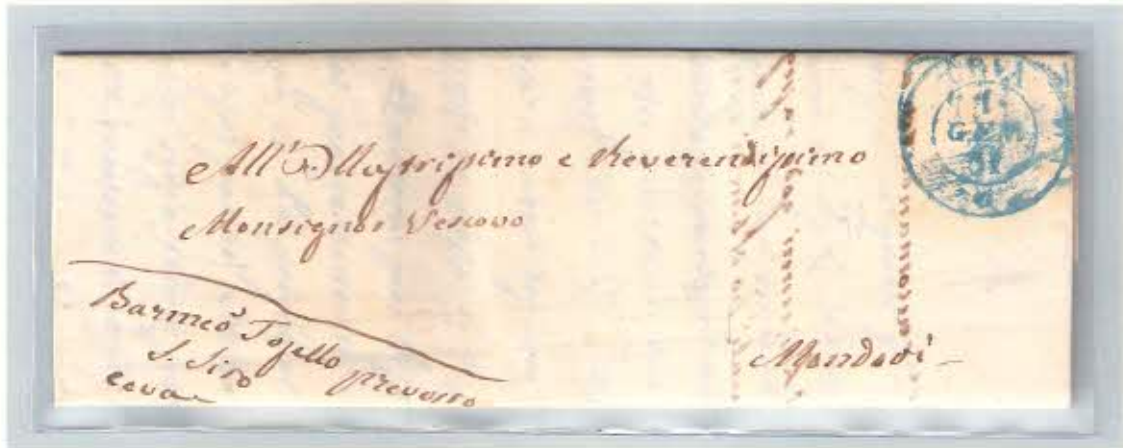 All' Illustrissimo e Reverendissimo
Monsignor Vescovo
Mondovì
Barmeo Tosello
prevosto
S. Siro
Ceva
GEN
51